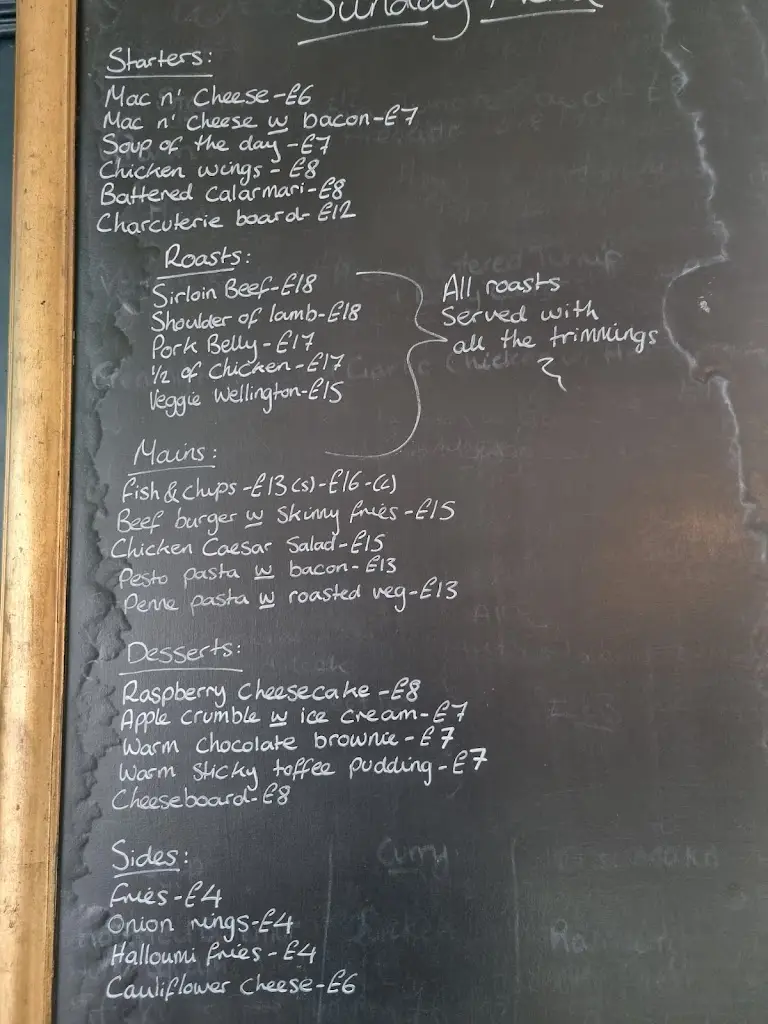 Sunday Menu
Starters:
Mac n' Cheese - £6
Mac n' Cheese w bacon - £7
Soup of the day - £7
Chicken wings - £8
Battered Calarmari - £8
Charcuterie board - £12
Roasts:
Sirloin Beef - £18
Shoulder of lamb - £18
Pork Belly - £17
1/2 of Chicken - £17
Veggie Wellington - £15
All roasts
Served with
all the trimmings
Mains:
Fish & chips - £13 (s) - £16 - (L)
Beef burger w Skinny fries - £15
Chicken Caesar Salad - £15
Pesto pasta w bacon - £13
Penne pasta w roasted veg - £13
Desserts:
Raspberry Cheesecake - £8
Apple crumble w ice cream - £7
Warm chocolate brownie - £7
Warm Sticky toffee pudding - £7
Cheeseboard - £8
Sides:
Fries - £4
Onion rings - £4
Halloumi fries - £4
Cauliflower cheese - £6
Curry